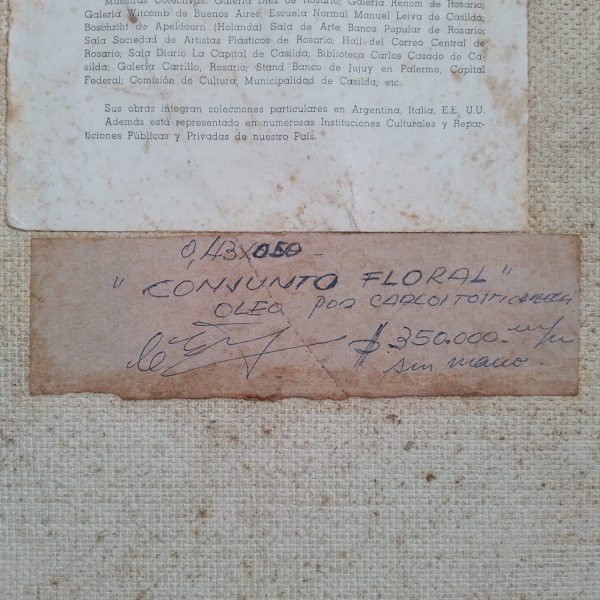 Muestras Colectivas: Galería Díez de Rosario; Galería Renom de Rosario;
Galería Witcomb de Buenos Aires; Escuela Normal Manuel Leiva de Casilda;
Boschziht de Apeldoorn (Holanda) Sala de Arte Banco Popular de Rosario;
Sala Sociedad de Artistas Plásticos de Rosario; Hall del Correo Central de
Rosario; Sala Diario La Capital de Casilda; Biblioteca Carlos Casado de Ca-
silda; Galería Carrillo, Rosario; Stand Banco de Jujuy en Palermo, Capital
Federal; Comisión de Cultura, Municipalidad de Casilda; etc.
Sus obras integran colecciones particulares en Argentina, Italia, E.E. U.U.
Además está representado en numerosas Instituciones Culturales y Repar-
ticiones Públicas y Privadas de nuestro País.
0,43x050-
"CONJUNTO FLORAL"
OLEO POR CARLOS
$ 350.000.- m/n
sin marco.